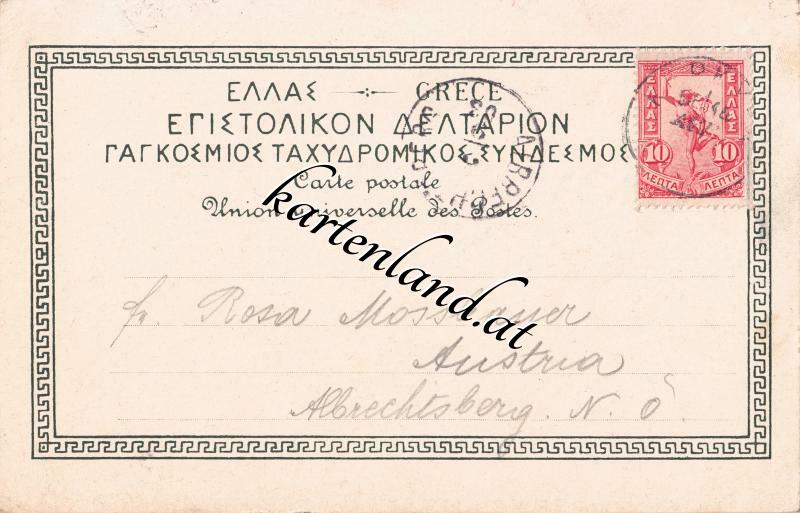 ΕΛΛΑΣ GRECE
ΕΠΙΣΤΟΛΙΚΟΝ ΔΕΛΤΑΡΙΟΝ
ΠΑΓΚΟΣΜΙΟΣ ΤΑΧΥΔΡΟΜΙΚΟΣ ΣΥΝΔΕΣΜΟΣ
Carte postale
Union universelle des Postes.
ΕΛΛΑΣ ΕΛΛΑΣ
10 10
ΛΕΠΤΑ ΛΕΠΤΑ
kartenland.at
Fr. Rosa
Austria
Albrechtsberg. N. Ö